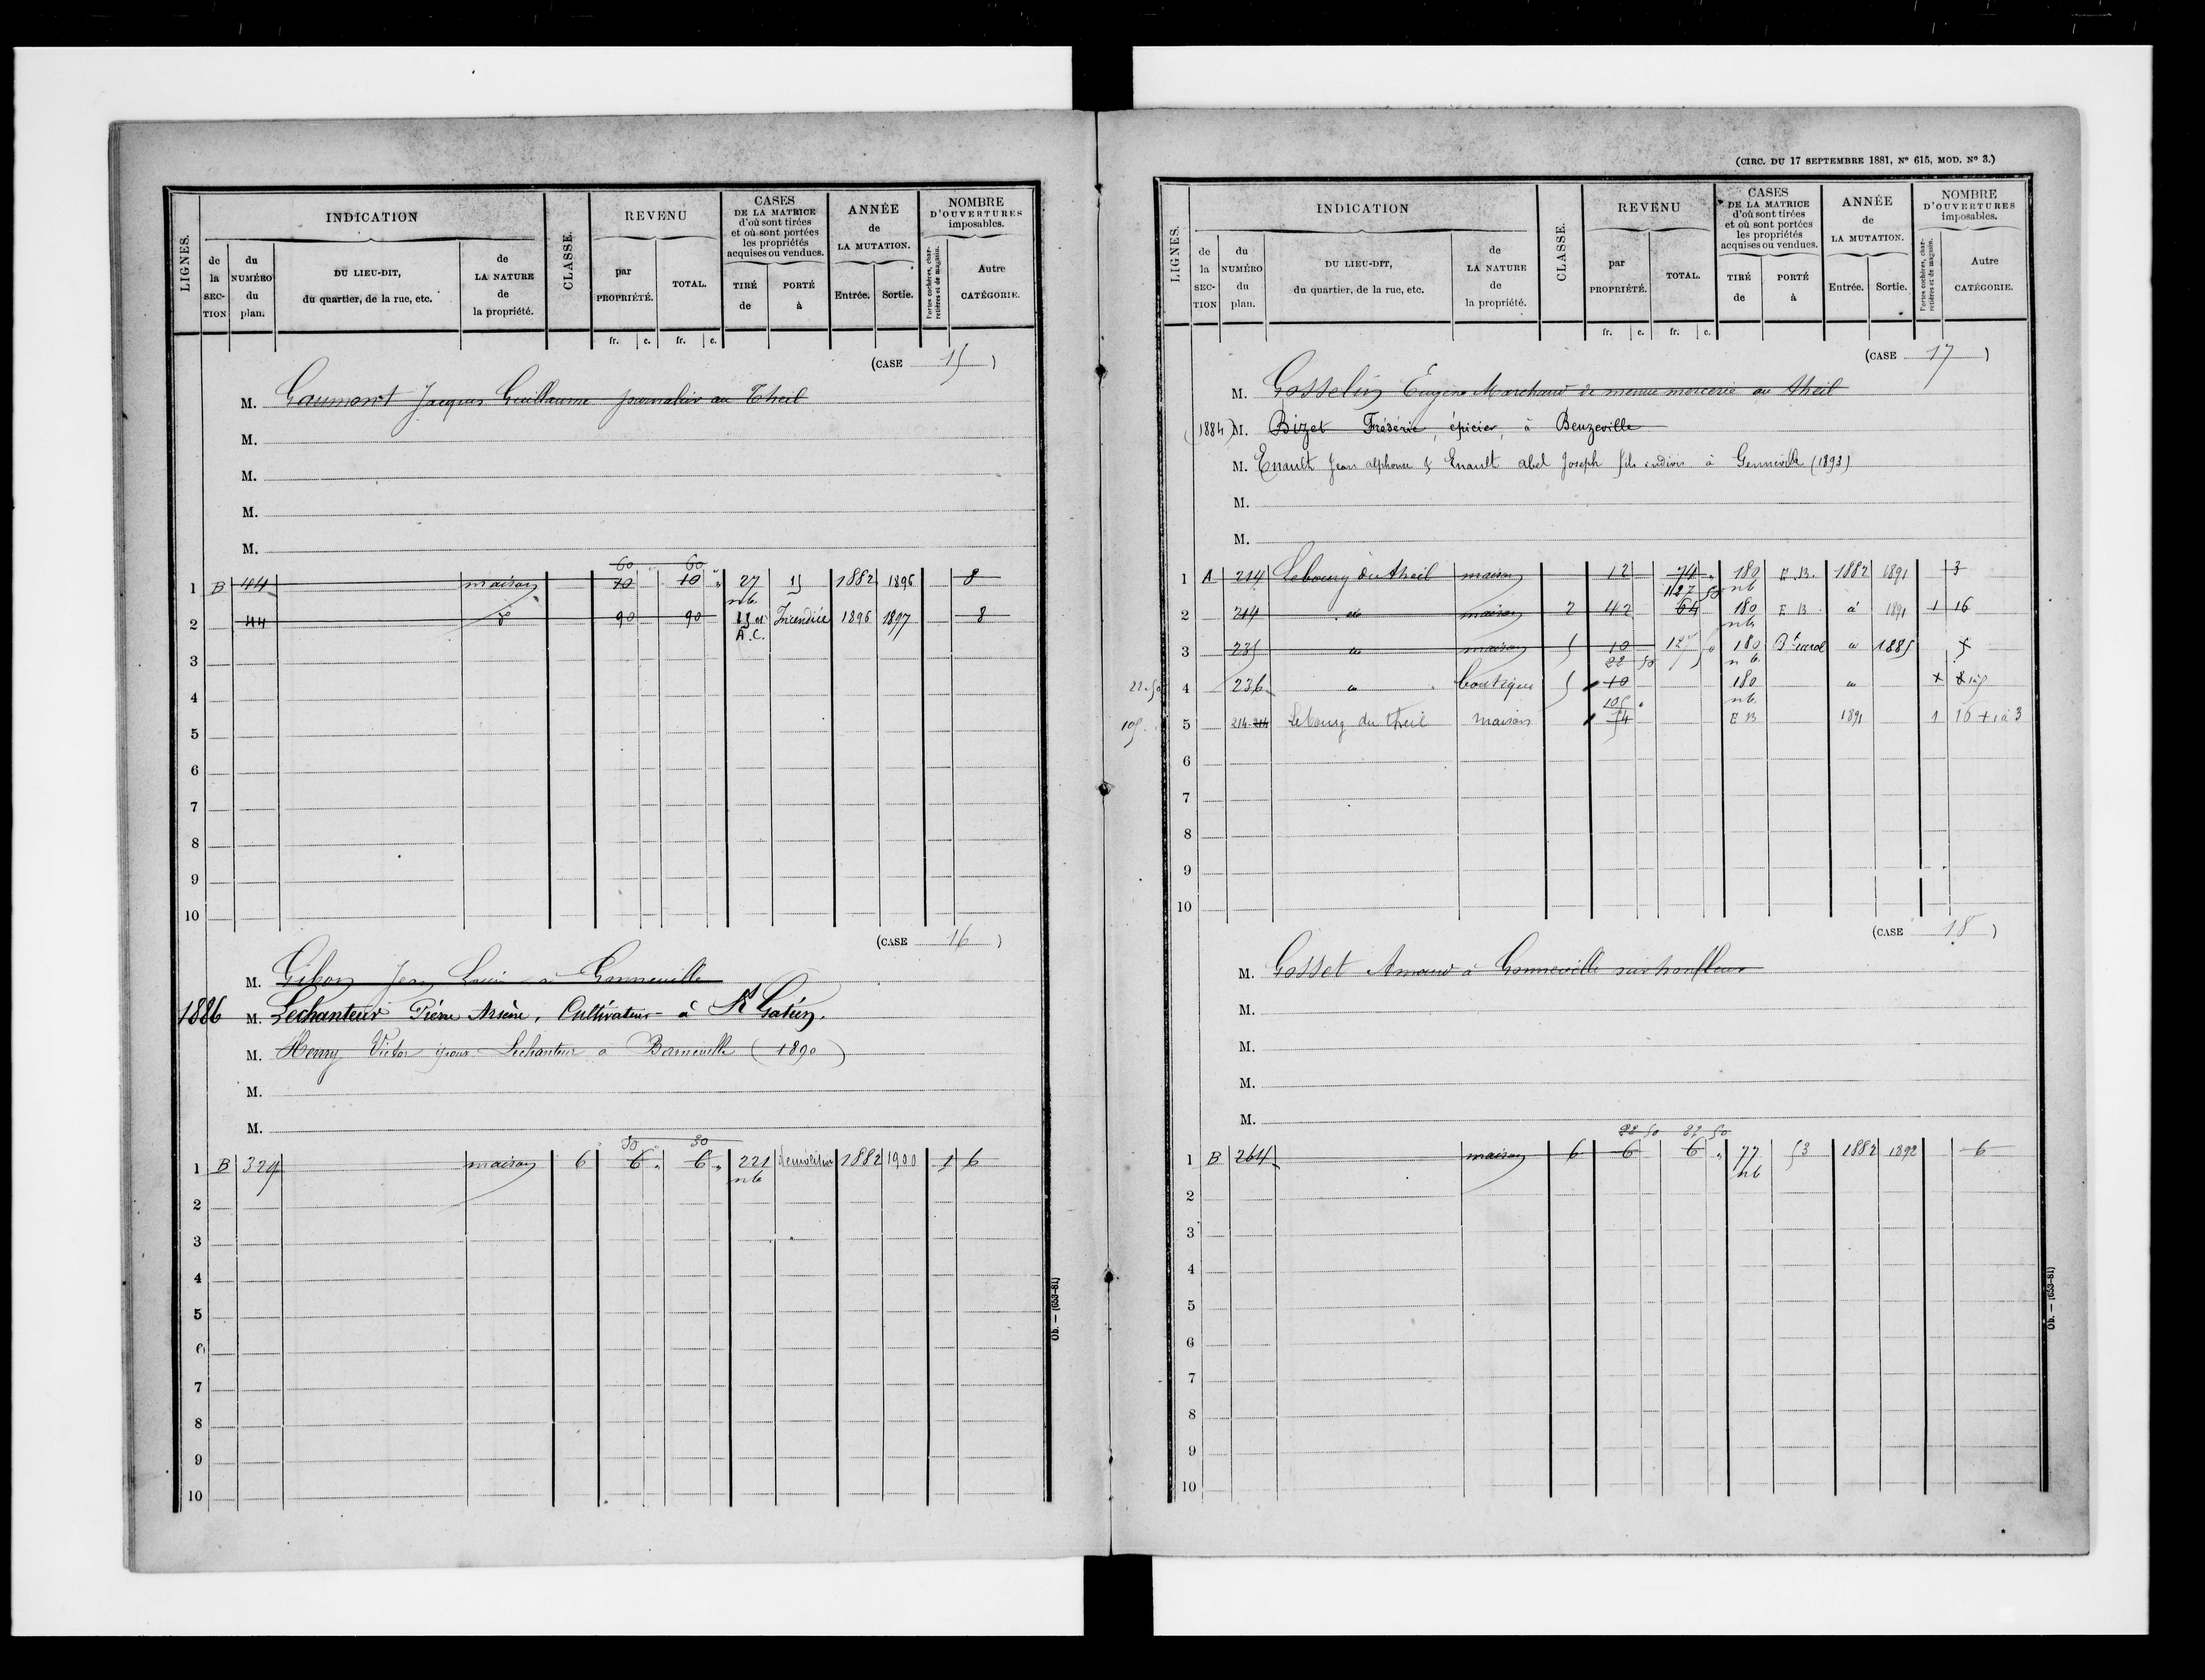 LIGNES.
INDICATION
de la SECTION
du NUMÉRO du plan.
DU LIEU-DIT, du quartier, de la rue, etc.
de LA NATURE de la propriété.
CLASSE.
REVENU
par PROPRIÉTÉ.
TOTAL.
CASES DE LA MATRICE d'où sont tirées et où sont portées les propriétés acquises ou vendues.
TIRÉ de
PORTÉ à
ANNÉE de LA MUTATION.
Entrée.
Sortie.
NOMBRE D'OUVERTURES imposables.
Portes cochères, charretières et de magasin.
Autre CATÉGORIE.
fr. c. fr. c.
(CASE 15)
M. Gaumont Jacques Guillaume journalier au Theil
M.
M.
M.
M.
60 60
1 B 44 maison 70 70 27 15 1882 1896 8
nb
2 44 d° 90 90 15 et Incendiée 1896 1897 8
A.C.
3
4
5
6
7
8
9
10
(CASE 16)
M. Gibon Jean Louis à Gonneville
1886 M. Lechanteur Pierre Arsène, Cultivateur à St Gatien.
M. Henry Victor époux Lechanteur à Barneville (1890)
M.
M.
30 30
1 B 329 maison 6 6 " 6 " 221 démolition 1882 1900 1 6
nb
2
3
4
5
6
7
8
9
10
Ob. — (653-81)
(CIRC. DU 17 SEPTEMBRE 1881, Nº 615, MOD. Nº 3.)
LIGNES.
INDICATION
de la SECTION
du NUMÉRO du plan.
DU LIEU-DIT, du quartier, de la rue, etc.
de LA NATURE de la propriété.
CLASSE.
REVENU
par PROPRIÉTÉ.
TOTAL.
CASES DE LA MATRICE d'où sont tirées et où sont portées les propriétés acquises ou vendues.
TIRÉ de
PORTÉ à
ANNÉE de LA MUTATION.
Entrée.
Sortie.
NOMBRE D'OUVERTURES imposables.
Portes cochères, charretières et de magasin.
Autre CATÉGORIE.
fr. c. fr. c.
(CASE 17)
M. Gosselin Eugène Marchand de menue mercerie au theil
(1884) M. Bizet Frédéric, épicier, à Beuzeville
M. Enault Jean alphonse & Enault abel Joseph fils indivis à Genneville (1893)
M.
M.
1 A 214 Le bourg du theil maison 12 74 " 180 E.B. 1882 1891 3
127 50 nb
2 214 do maison 2 42 64 180 E B d° 1891 1 16
nb
3 235 do maison 5 10 180 do 1885 5
22 50 nb
22.50 4 236 do boutique 5 10 180 do
105 nb
105 5 214-214 Le bourg du theil maison 54 E B 1891 1 16 + 1 à 3
6
7
8
9
10
(CASE 18)
M. Gosset Amand à Gonneville sur honfleur
M.
M.
M.
M.
22 50 22 50
1 B 264 maison 6 6 6 " 77 53 1882 1892 6
nb
2
3
4
5
6
7
8
9
10
Ob. — (653-81)